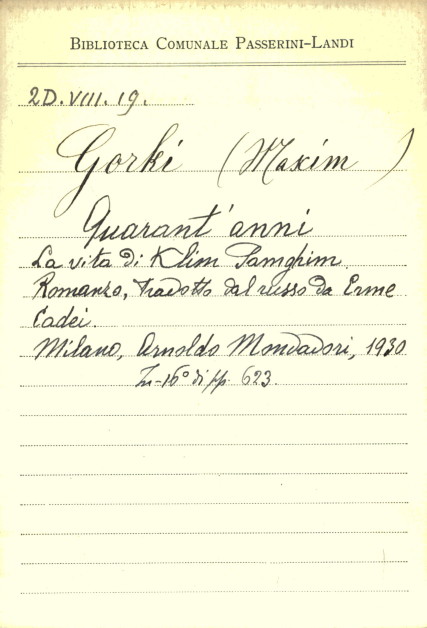 BIBLIOTECA COMUNALE PASSERINI-LANDI
2D.VIII.19.
Gorki (Maxim)
Quarant'anni
La vita di Klim Samghim
Romanzo, tradotto dal russo da Erme
Cadei.
Milano, Arnoldo Mondadori, 1930
In-16° di pp. 623.